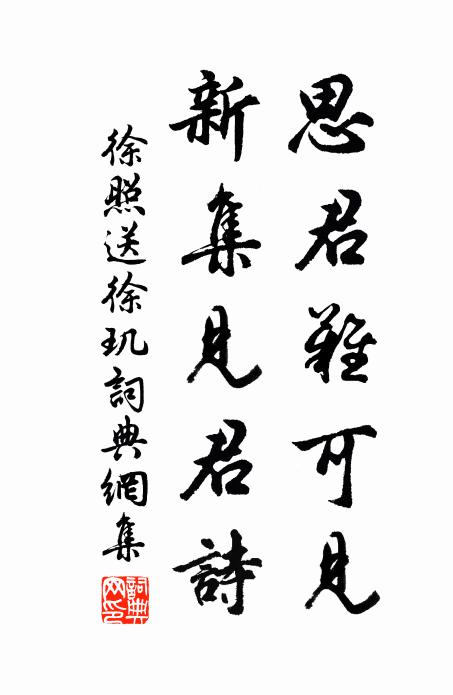 思君難可見
新集見君詩
徐照送徐玑詞典網集
詞典網印